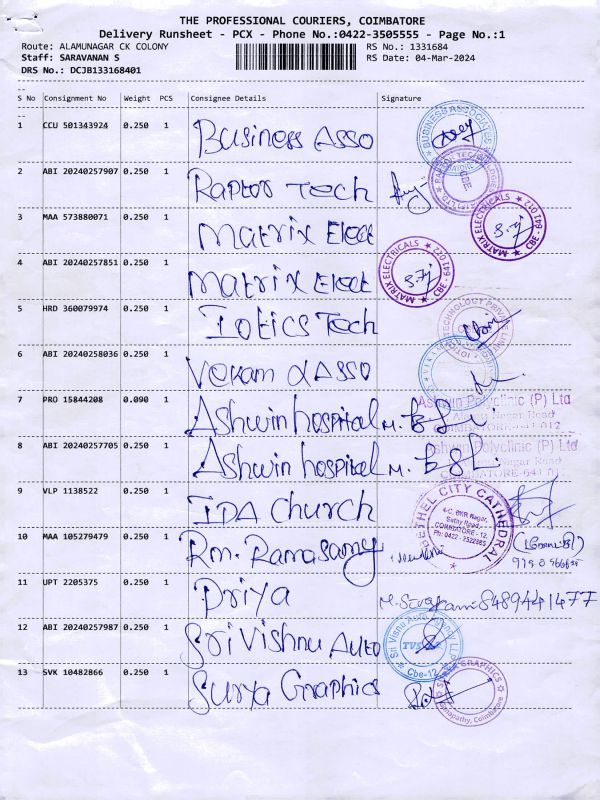 THE PROFESSIONAL COURIERS, COIMBATORE
Delivery Runsheet - PCX - Phone No.:0422-3505555 - Page No.:1
Route: ALAMUNAGAR CK COLONY RS No.: 1331684
Staff: SARAVANAN S RS Date: 04-Mar-2024
DRS No.: DCJB133168401
S No Consignment No Weight PCS Consignee Details Signature
1 CCU 501343924 0.250 1 Business Asso
BUSINESS ASSOCIATES
2 ABI 20240257907 0.250 1 Raptor Tech
3 MAA 573880071 0.250 1 Matrix Elect
MATRIX ELECTRICALS ★ CBE - 641 012 ★
4 ABI 20240257851 0.250 1 Matrix Elect
MATRIX ELECTRICALS ★ CBE - 641 012 ★
5 HRD 360079974 0.250 1 Iotics Tech
6 ABI 20240258036 0.250 1 Vekam & Asso
7 PRO 15844208 0.090 1 Ashwin hospital
Ashwin Polyclinic (P) Ltd
COIMBATORE-641 012
8 ABI 20240257705 0.250 1 Ashwin hospital
Ashwin Polyclinic (P) Ltd
COIMBATORE-641 012
9 VLP 1138522 0.250 1 IPA Church
BETHEL CITY CATHEDRAL
Sathy Road,
COIMBATORE - 12.
Ph: 0422 - 2522885
10 MAA 105279479 0.250 1 Rm. Ramasamy
11 UPT 2205375 0.250 1 Priya 8489441477
12 ABI 20240257987 0.250 1 Sri Vishnu Auto
TVS
Cbe-12
13 SVK 10482866 0.250 1 Surya Graphics
SURYA GRAPHICS
Ganapathy, Coimbatore